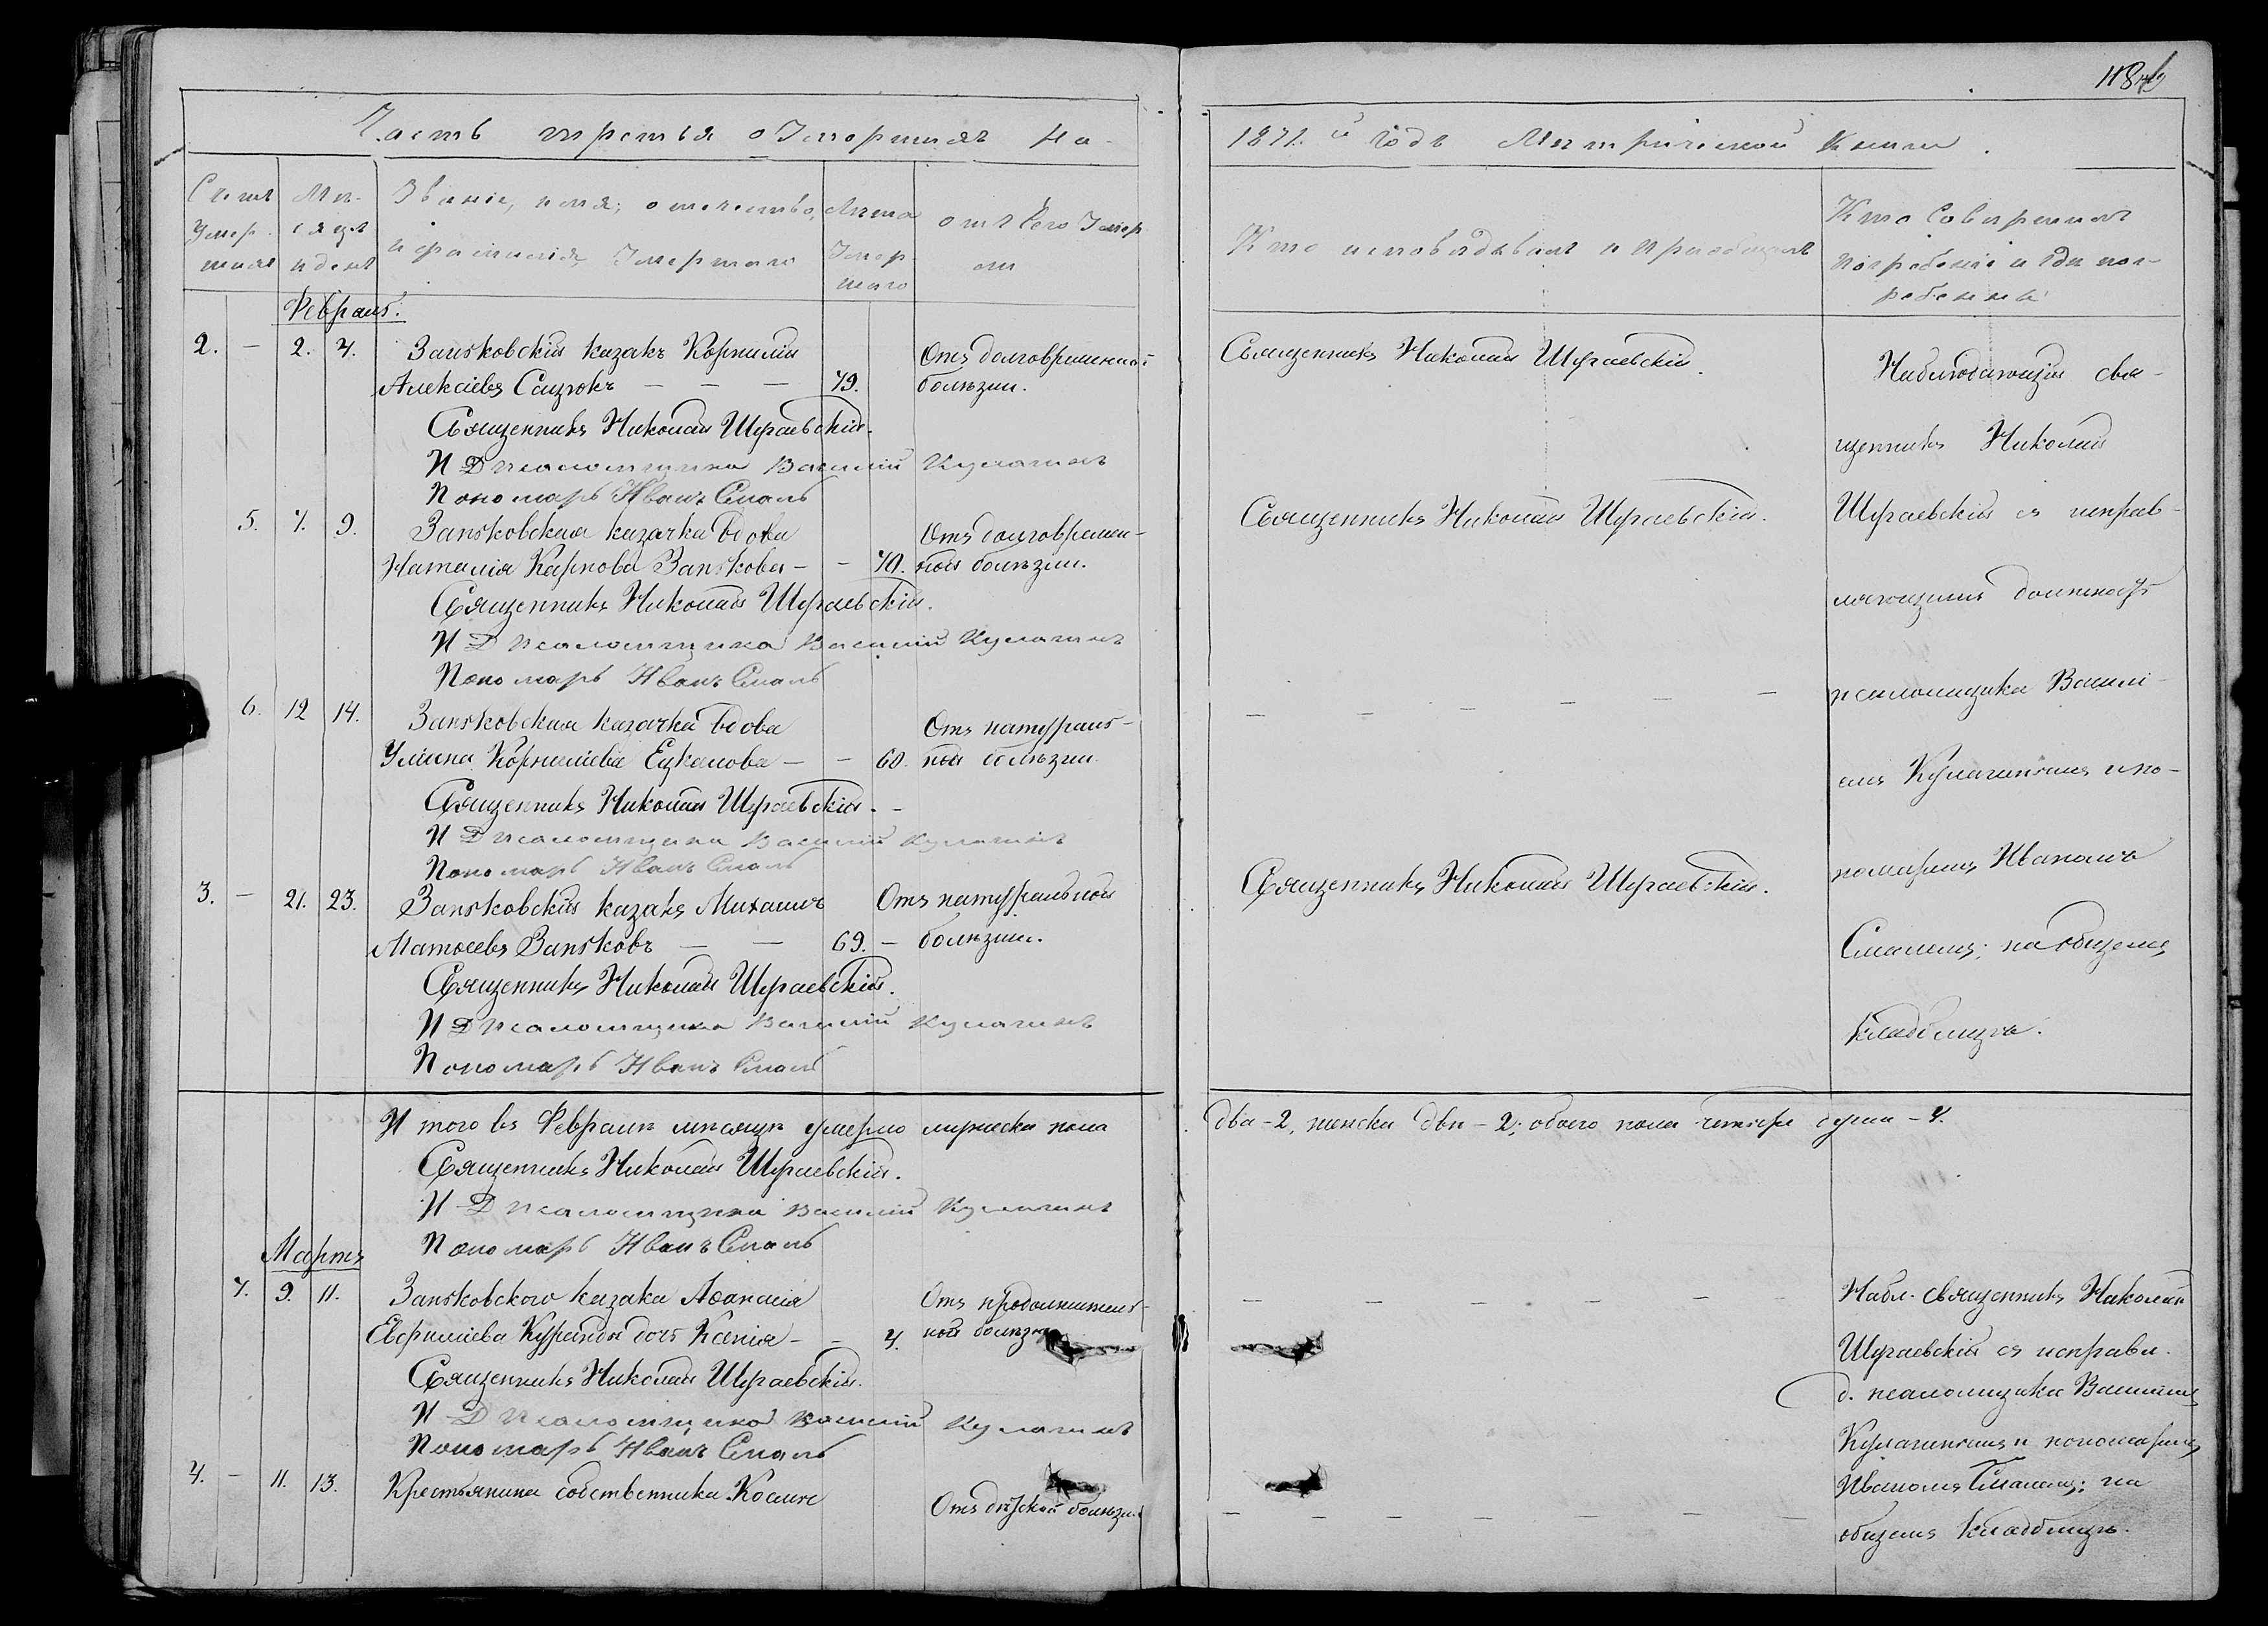 Часть третья о Умершихъ На
1871.й Годъ Метрической Книги.
Счетъ Умер шихъ
Мѣ- сяцъ и день
Званіе, имя, отечество, и фамилія Умершаго
Лѣта Умер шаго
отъ Чего Умеръ
Кто исповѣдывалъ и пріобщалъ
Кто Совершалъ погребеніе и гдѣ погребены
Февраль.
2. — 2. 4. Заньковскій казакъ Корнилій Отъ долговременной Священникъ Николай Шураевскій.
Алексѣевъ Сацюкъ — — — 79. болѣзни.
Священникъ Николай Шураевскій.
И Д Псаломщика Василій Кулагинъ
Пономарь Иванъ Смаль
5. 7. 9. Заньковская казачка вдова Отъ долговремен- Священникъ Николай Шураевскій.
Наталія Карпова Занькова — — 70. ной болѣзни.
Священникъ Николай Шураевскій.
И Д Псаломщика Василій Кулагинъ
Пономарь Иванъ Смаль
6. 12 14. Заньковская казачка вдова Отъ натураль- — — — — —
Улiана Корниліева Ецкалова — — 60. ной болѣзни.
Священникъ Николай Шураевскій. —
И Д Псаломщика Василій Кулагинъ
Пономарь Иванъ Смаль
3. — 21. 23. Заньковскій казакъ Михаилъ Отъ натуральной Священникъ Николай Шураевскій.
Матѳеевъ Заньковъ — — 69. — болѣзни.
Священникъ Николай Шураевскій.
И Д Псаломщика Василій Кулагинъ
Пономарь Иванъ Смаль
Наблюдающій свя-
щенникъ Николай
Шураевскій съ исправ-
ляющимъ должность
псаломщика Василі-
емъ Кулагинымъ и по-
номаремъ Иваномъ
Смалемъ; на общемъ
кладбищѣ.
И того въ Февралѣ мѣсяцѣ умерло мужеска пола два - 2, женска двѣ - 2; обоего пола четыре души - 4.
Священникъ Николай Шураевскій.
И Д Псаломщика Василій Кулагинъ
Пономарь Иванъ Смаль
Мартъ
7. 9. 11. Заньковского казака Аѳанасія Отъ продолжитель- — — — — —
дочь Ксенія — — 4. ной болѣзни
Священникъ Николай Шураевскій.
И Д Псаломщика Василій Кулагинъ
Пономарь Иванъ Смаль
4. — 11. 13. Крестьянина собственника Косьмы Отъ дѣтской болѣзни — — — — — —
Набл. священникъ Николай
Шураевскій съ исправл.
д. псаломщика Василіемъ
Кулагинымъ и пономаремъ
Иваномъ Смалемъ; на
общемъ кладбищѣ.